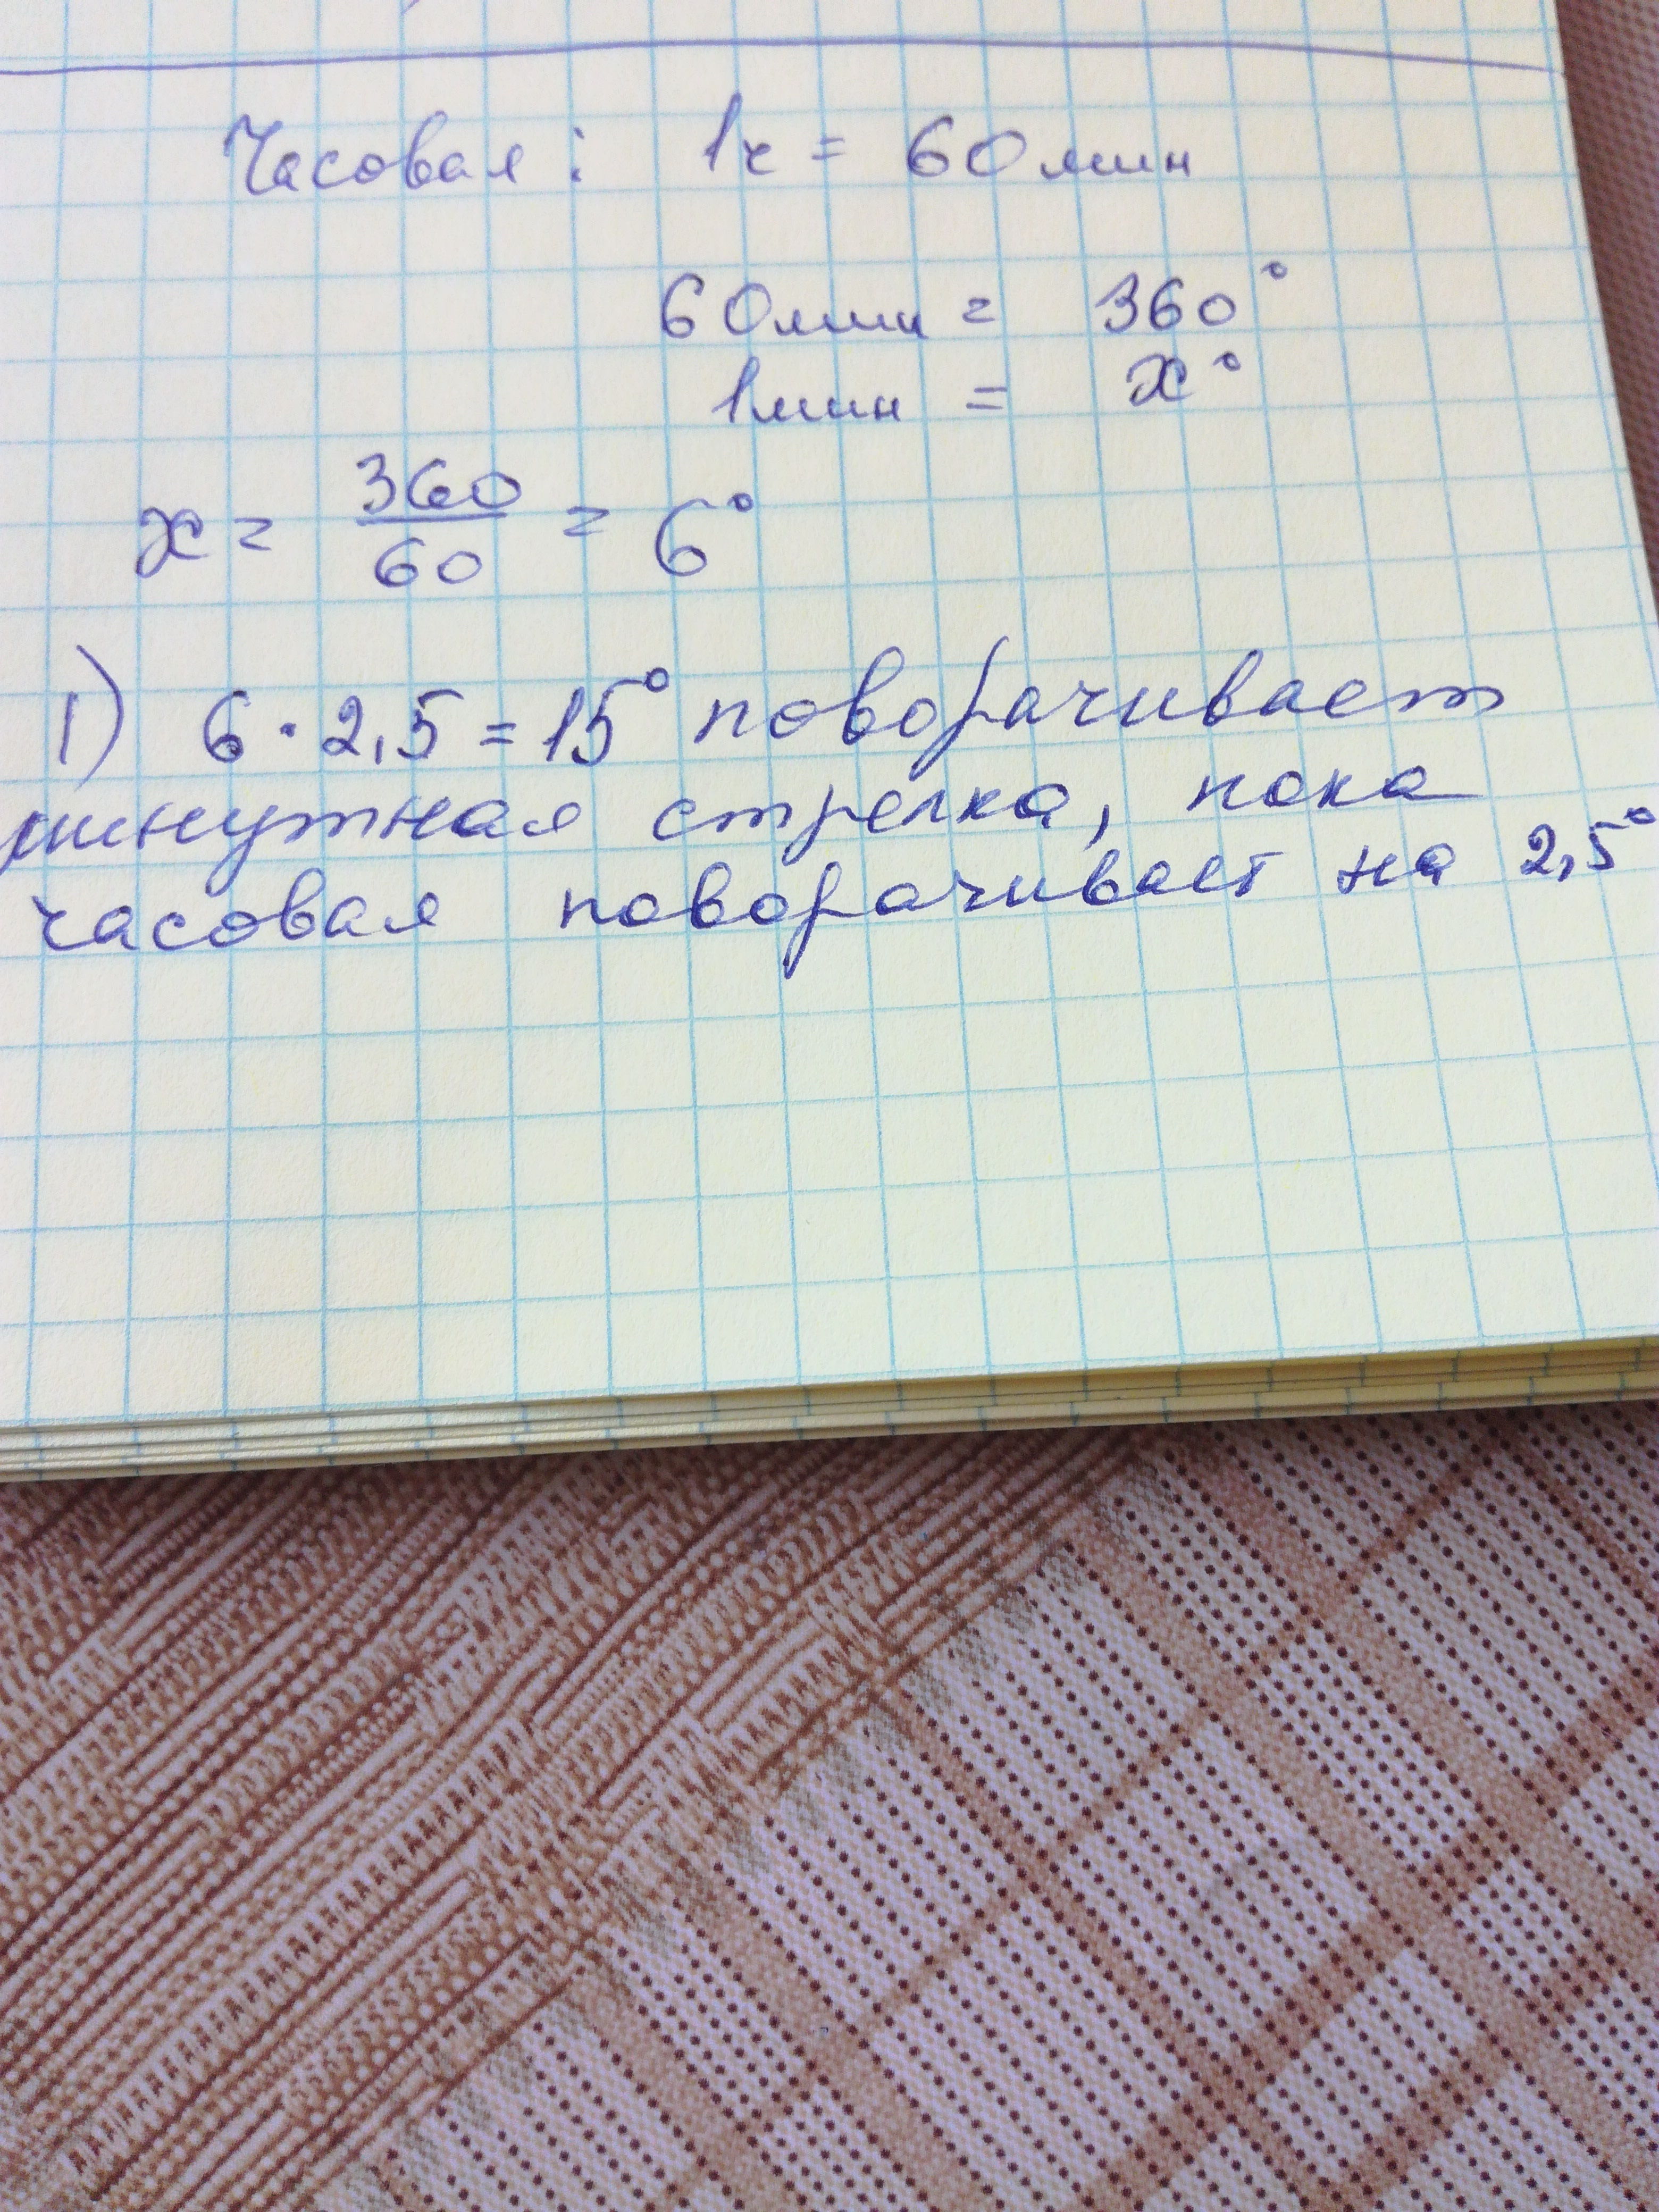 Часовая: 1ч = 60мин
60мин = 360°
1мин = x°
x = 360/60 = 6°
1) 6·2,5=15° поворачивает
минутная стрелка, пока
часовая поворачивает на 2,5°